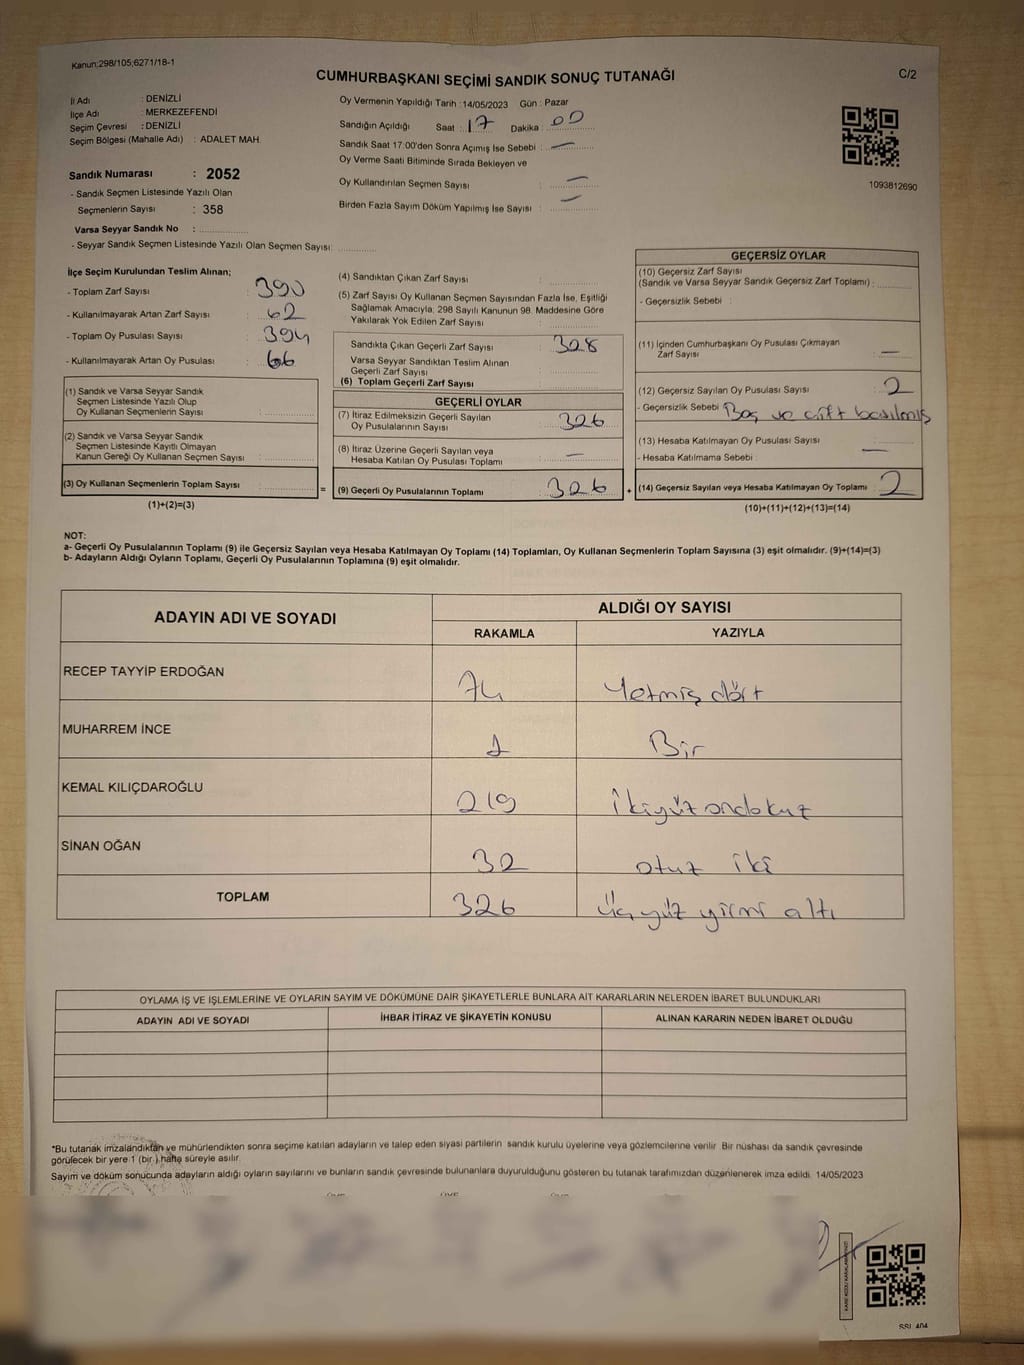 Kanun;298/105;6271/18-1
CUMHURBAŞKANI SEÇİMİ SANDIK SONUÇ TUTANAĞI
C/2
İl Adı : DENİZLİ
İlçe Adı : MERKEZEFENDİ
Seçim Çevresi : DENİZLİ
Seçim Bölgesi (Mahalle Adı) : ADALET MAH.
Sandık Numarası : 2052
- Sandık Seçmen Listesinde Yazılı Olan
Seçmenlerin Sayısı : 358
Varsa Seyyar Sandık No :
- Seyyar Sandık Seçmen Listesinde Yazılı Olan Seçmen Sayısı:
Oy Vermenin Yapıldığı Tarih : 14/05/2023 Gün : Pazar
Sandığın Açıldığı Saat : 17 Dakika : 00
Sandık Saat 17:00'den Sonra Açımış İse Sebebi : —
Oy Verme Saati Bitiminde Sırada Bekleyen ve
Oy Kullandırılan Seçmen Sayısı : —
Birden Fazla Sayım Döküm Yapılmış İse Sayısı : —
1093812690
İlçe Seçim Kurulundan Teslim Alınan;
- Toplam Zarf Sayısı : 390
- Kullanılmayarak Artan Zarf Sayısı : 62
- Toplam Oy Pusulası Sayısı : 394
- Kullanılmayarak Artan Oy Pusulası : 66
(1) Sandık ve Varsa Seyyar Sandık
Seçmen Listesinde Yazılı Olup
Oy Kullanan Seçmenlerin Sayısı :
(2) Sandık ve Varsa Seyyar Sandık
Seçmen Listesinde Kayıtlı Olmayan
Kanun Gereği Oy Kullanan Seçmen Sayısı :
(3) Oy Kullanan Seçmenlerin Toplam Sayısı =
(1)+(2)=(3)
(4) Sandıktan Çıkan Zarf Sayısı :
(5) Zarf Sayısı Oy Kullanan Seçmen Sayısından Fazla İse, Eşitliği
Sağlamak Amacıyla; 298 Sayılı Kanunun 98. Maddesine Göre
Yakılarak Yok Edilen Zarf Sayısı :
Sandıkta Çıkan Geçerli Zarf Sayısı : 328
Varsa Seyyar Sandıktan Teslim Alınan
Geçerli Zarf Sayısı :
(6) Toplam Geçerli Zarf Sayısı :
GEÇERLİ OYLAR
(7) İtiraz Edilmeksizin Geçerli Sayılan
Oy Pusulalarının Sayısı : 326
(8) İtiraz Üzerine Geçerli Sayılan veya
Hesaba Katılan Oy Pusulası Toplamı : —
(9) Geçerli Oy Pusulalarının Toplamı : 326 +
GEÇERSİZ OYLAR
(10) Geçersiz Zarf Sayısı
(Sandık ve Varsa Seyyar Sandık Geçersiz Zarf Toplamı) :
- Geçersizlik Sebebi :
(11) İçinden Cumhurbaşkanı Oy Pusulası Çıkmayan
Zarf Sayısı : —
(12) Geçersiz Sayılan Oy Pusulası Sayısı : 2
- Geçersizlik Sebebi : Boş ve çift basılmış
(13) Hesaba Katılmayan Oy Pusulası Sayısı :
- Hesaba Katılmama Sebebi : —
(14) Geçersiz Sayılan veya Hesaba Katılmayan Oy Toplamı : 2
(10)+(11)+(12)+(13)=(14)
NOT:
a- Geçerli Oy Pusulalarının Toplamı (9) ile Geçersiz Sayılan veya Hesaba Katılmayan Oy Toplamı (14) Toplamları, Oy Kullanan Seçmenlerin Toplam Sayısına (3) eşit olmalıdır. (9)+(14)=(3)
b- Adayların Aldığı Oyların Toplamı, Geçerli Oy Pusulalarının Toplamına (9) eşit olmalıdır.
ADAYIN ADI VE SOYADI
ALDIĞI OY SAYISI
RAKAMLA YAZIYLA
RECEP TAYYİP ERDOĞAN 74 Yetmiş dört
MUHARREM İNCE 1 Bir
KEMAL KILIÇDAROĞLU 219 ikiyüz ondokuz
SİNAN OĞAN 32 otuz iki
TOPLAM 326 üç yüz yirmi altı
OYLAMA İŞ VE İŞLEMLERİNE VE OYLARIN SAYIM VE DÖKÜMÜNE DAİR ŞİKAYETLERLE BUNLARA AİT KARARLARIN NELERDEN İBARET BULUNDUKLARI
ADAYIN ADI VE SOYADI İHBAR İTİRAZ VE ŞİKAYETİN KONUSU ALINAN KARARIN NEDEN İBARET OLDUĞU
*Bu tutanak imzalandıktan ve mühürlendikten sonra seçime katılan adayların ve talep eden siyasi partilerin sandık kurulu üyelerine veya gözlemcilerine verilir. Bir nüshası da sandık çevresinde
görülecek bir yere 1 (bir) hafta süreyle asılır.
Sayım ve döküm sonucunda adayların aldığı oyların sayılarını ve bunların sandık çevresinde bulunanlara duyurulduğunu gösteren bu tutanak tarafımızdan düzenlenerek imza edildi. 14/05/2023